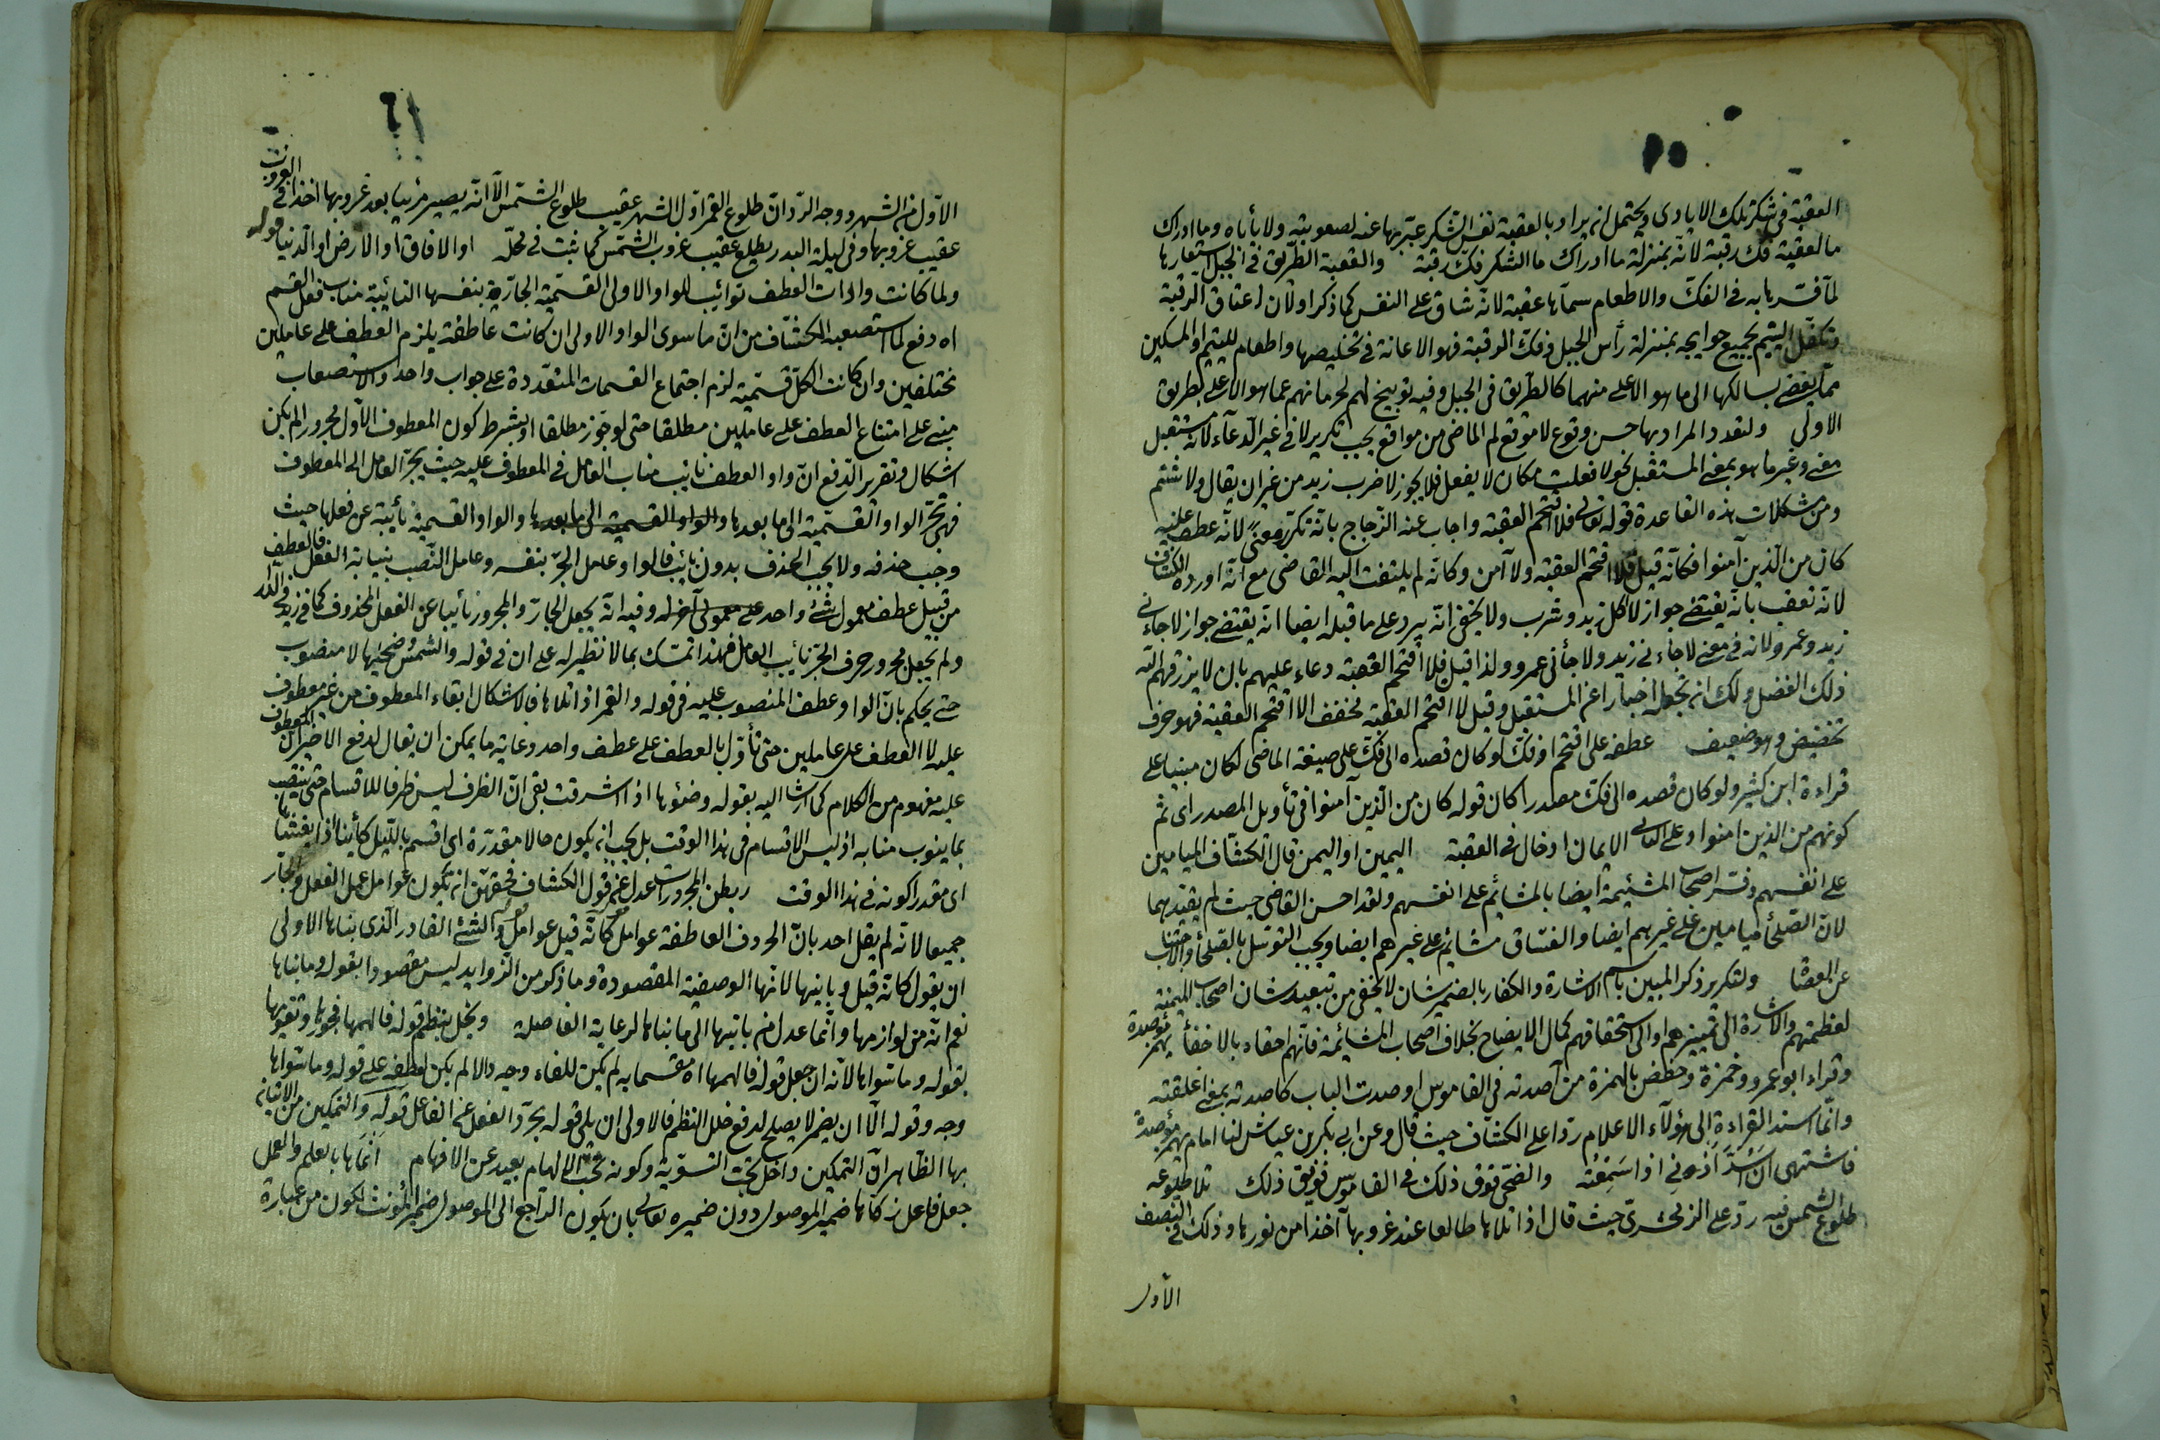 العقبة في شكر تلك الايادى ويحتمل ان يراد بالعقبة نفس الشكر عبّر بها عنه لصعوبته ولا يأباه وما ادراك
ما العقبة فك رقبة لانه بمنزلة ما ادراك ما الشكر فك رقبة والعقبة الطريق في الجبل استعارها
لما فسّرها به في الفك والاطعام سمّاها عقبة لانه شاق على النفس كما ذكر او لان اعتاق الرقبة
وتكفّل اليتيم بجميع حوايجه بمنزلة رأس الجبل وفك الرقبة فهو الاعانة في تخليصها واطعام لليتيم او المسكين
مما يفضى بسالكها الى ما هو الاعلى منهما كالطريق في الجبل وفيه توبيخ لهم لحرمانهم عما هو الاعلى بطريق
الاولى ولتعدد المراد بها حسن وقوع لا موقع لم الماضى من مواقع يجب تكرير لا في غير الدعاء لانه مستقبل
معنى وغير ما هو بمعنى المستقبل نحو لا فعلت مكان لا يفعل فلا يجوز لا ضرب زيد من غير ان يقال ولا شتم
ومن مشكلات هذه القاعدة قوله تعالى فلا اقتحم العقبة واجاب عنه الزجاج بانه تكرر معنى لانه عطف عليه
كان من الذين آمنوا فكأنه قيل فلا اقتحم العقبة ولا آمن وكانه لم يلتفت اليه القاضى مع انه اورده الكشاف
لانه تعقب بانه يقتضى جواز لا اكل زيد وشرب ولا يخفى انه يرد على ما قبله ايضا انه يقتضى جواز لا جاءنى
زيد وعمرو لانه في معنى لا جاءنى زيد ولا جأنى عمرو ولذا قيل فلا اقتحم العقبة دعاء عليهم بان لا يرزقهم الله
ذلك الفضل ولك ان تجعل اخبارا عن المستقبل وقيل لا اقتحم العقبة مخفف الا اقتحم العقبة فهو حرف
تحضيض وهو ضعيف عطفه على اقتحم او فك لو كان قصده الى فك على صيغة الماضى لكان مبنيا على
قراءة ابن كثير ولو كان قصده الى فك مصدرا كان قوله كان من الذين آمنوا في تأويل المصدر اى ثم
كونهم من الذين امنوا وعلى الثانى الايمان ادخال في العقبة اليمين او اليمن قال الكشاف الميامين
على انفسهم وفسّر اصحاب المشئمة ايضا بالمشائم على انفسهم ولقد احسن القاضى حيث لم يقيد بهما
لان الصلحأ ميامين على غيرهم ايضا والفساق مشائم على غيرهم ايضا ويجب التوسل بالصلحأ والاجتناب
عن العصاة ولتكرير ذكر المبين باسم الاشارة والكفار بالضمير شان لا يخفى من تبعيد شان اصحاب الميمنة
لعظمتهم والاشارة الى تميزهم والى استحقاقهم كمال الايضاح بخلاف اصحاب المشائمة فانهم احقاء بالاخفأ بهمز مؤصدة
وقراء ابو عمرو وحمزة وحفص بالهمزة من آصدته في القاموس اوصدت الباب كاصدته بمعنى اغلقته
وانما اسند القراءة الى هؤلآء الاعلام ردّا على الكشاف حيث قال وعن ابى بكر بن عياش لنا امام يهمز مؤصدة
فاشتهى ان اسدّ اذنى اذا سمعته والضحى فوق ذلك في القاموس فويق ذلك تلا طلوعه
طلوع الشمس فيه ردّ على الزمخشرى حيث قال اذا تلاها طالعا عند غروبها آخذا من نورها وذلك في النصف
الاول
الاول من الشهر ووجه الرد ان طلوع القمر اول الشهر عقيب طلوع الشمس الا انه يصير مرئيا بعد غروبها اخذا في الغروب
عقيب غروبها وفي ليلة البدر يطلع عقيب غروب الشمس كما ثبت في محله او الافاق او الارض او الدنيا قوله
ولما كانت واوات العطف توائب للواو الاولى القسمية الجارة بنفسها النائبة مناب فعل القسم
اه دفع لما استصعبه الكشاف من ان ما سوى الواو الاولى ان كانت عاطفة يلزم العطف على عاملين
مختلفين وان كانت الكل قسمية لزم اجتماع القسمات المتعددة على جواب واحد والاستصعاب
مبنى على امتناع العطف على عاملين مطلقا حتى لو جوز مطلقا او بشرط كون المعطوف الاول مجرورا لم يكن
اشكال وتقرير الدفع ان واو العطف نايب مناب العامل في المعطوف عليه حيث يجر العامل الى المعطوف
فهى تجر الواو القسمية الى ما بعدها والواو القسمية الى ما بعدها والواو القسمية نائبة عن فعلها حيث
وجب حذفه ولا يجب الحذف بدون نائب فالواو عامل الجر بنفسه وعامل النصب بنيابة الفعل فالعطف
من قبيل عطف معمول شئ واحد على معمولى آخر له وفيه انه يجعل الجار والمجرور نائبا عن الفعل المحذوف كما في زيد في الدار
ولم يجعل مجرد حرف الجر نائب العامل فهذا تمسك بما لا نظير له على ان في قوله والشمس وضحيها لا منصوب
حتى يحكم بان الواو عطف المنصوب عليه في قوله والقمر اذا تلاها فالاشكال ابقاء المعطوف من غير معطوف
عليه لا العطف على عاملين حتى تأول بالعطف على عطف واحد وغاية ما يمكن ان يقال لدفع الاخير ان المعطوف
عليه مفهوم من الكلام كما اشار اليه بقوله وضوئها اذا اشرقت بقى ان الظرف ليس ظرفا للاقسام حتى ينتصب
بما ينوب منابه اذ ليس الاقسام في هذا الوقت بل يجب ان يكون حالا مقدرة اى اقسم بالليل كائنا اذا يغشاها
اى مقدرا كونه في هذا الوقت ربطن المجرورات عدل عن قول الكشاف فحقهن ان تكون عوامل عمل الفعل والجار
جميعا لانه لم يقل احد بان الحروف العاطفة عوامل كانه قيل عوامل والشئ القادر الذى بناها الاولى
ان يقول كانه قيل وبانيها لانها الوصفية المقصودة وما ذكر من الزوايد ليس مقصودا بقوله وما بناها
نعم انه من لوازمها وانما عدل من بانيها الى ما بناها لرعاية الفاصلة ويخل بنظم قوله فالهمها فجورها وتقويها
بقوله وما سواها لانه ان جعل قوله فالهمها اه مقسما به لم يكن للفاء وجه والا لم يكن لعطفه على قوله وما سواها
وجه وقوله الا ان يضمر لا يصلح لدفع خلل النظم فالاولى ان يلى قوله بجرد الفعل عن الفاعل قوله والتمكين من الاتيان
بها الظاهر ان التمكين داخل تحت التسوية وكونه تحت الالهام بعيد عن الافهام انماها بالعلم والعمل
جعل فاعل زكاها ضمير الموصول دون ضميره تعالى بان يكون الراجع الى الموصول ضمير المؤنث لكون من عبارة